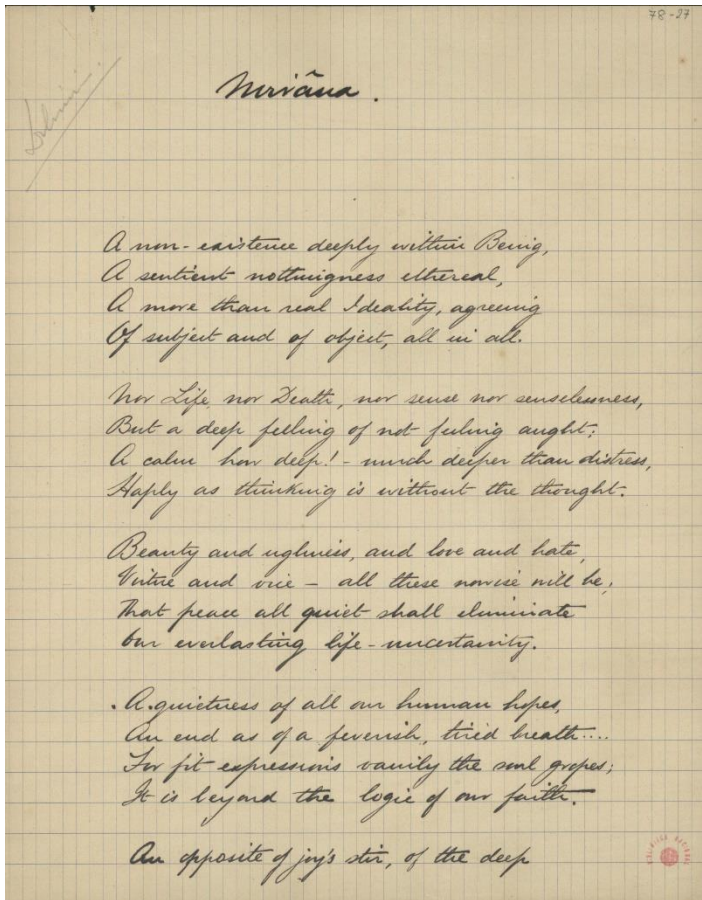 78-27
Nirvâna.
A non-existence deeply within Being,
A sentient nothingness ethereal,
A more than real Ideality, agreeing
Of subject and of object, all in all.
Nor Life, nor Death, nor sense nor senselessness,
But a deep feeling of not feeling aught;
A calm how deep! - much deeper than distress,
Haply as thinking is without the thought.
Beauty and ugliness, and love and hate,
Virtue and vice – all these nowise will be;
That peace all quiet shall eliminate
Our everlasting life-uncertainty.
A quietness of all our human hopes,
An end as of a feverish, tired breath....
For fit expressions vainly the soul gropes;
It is beyond the logic of our faith.
An opposite of joy's stir, of the deep